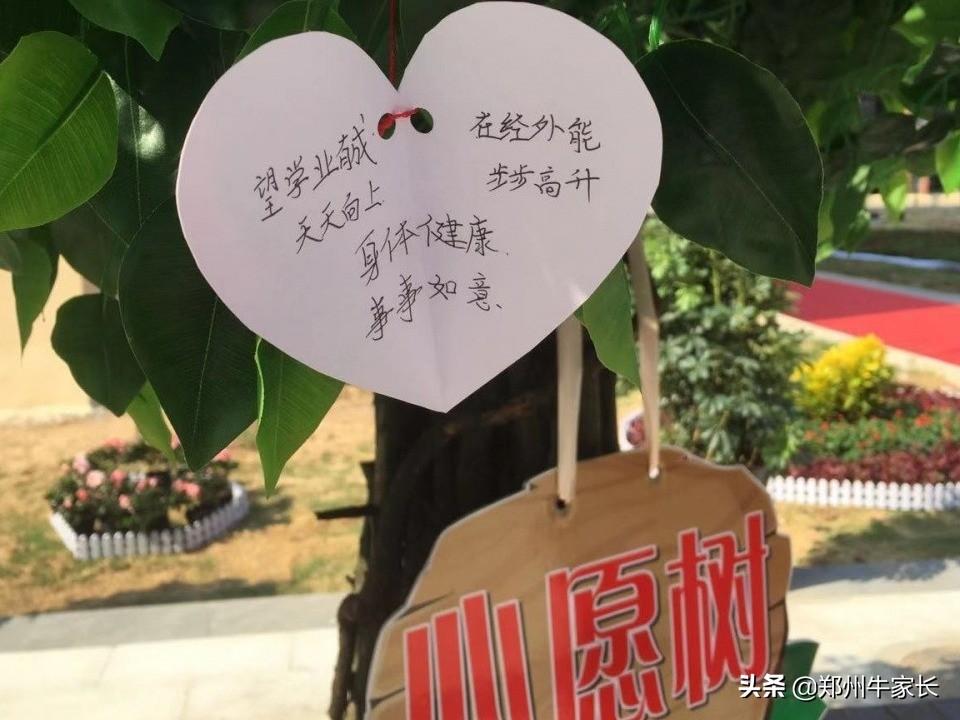 望学业有成
天天向上.
在经外能
步步高升
身体健康.
事事如意.
心愿树
头条 @郑州牛家长